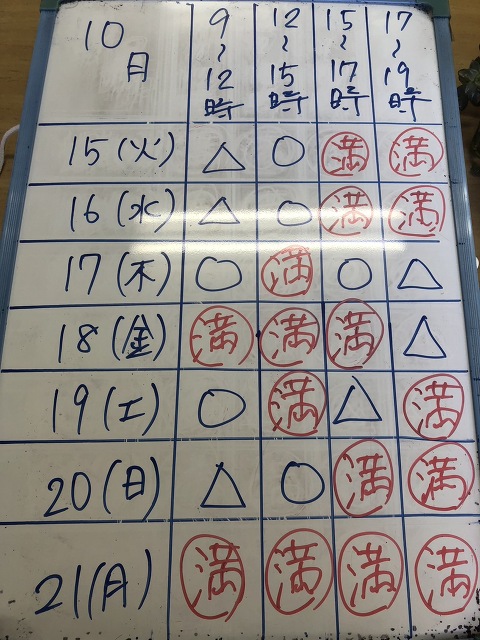 10月 9~12時 12~15時 15~17時 17~19時
15(火) △ ○ 満 満
16(水) △ ○ 満 満
17(木) ○ 満 ○ △
18(金) 満 満 満 △
19(土) ○ 満 △ 満
20(日) △ ○ 満 満
21(月) 満 満 満 満